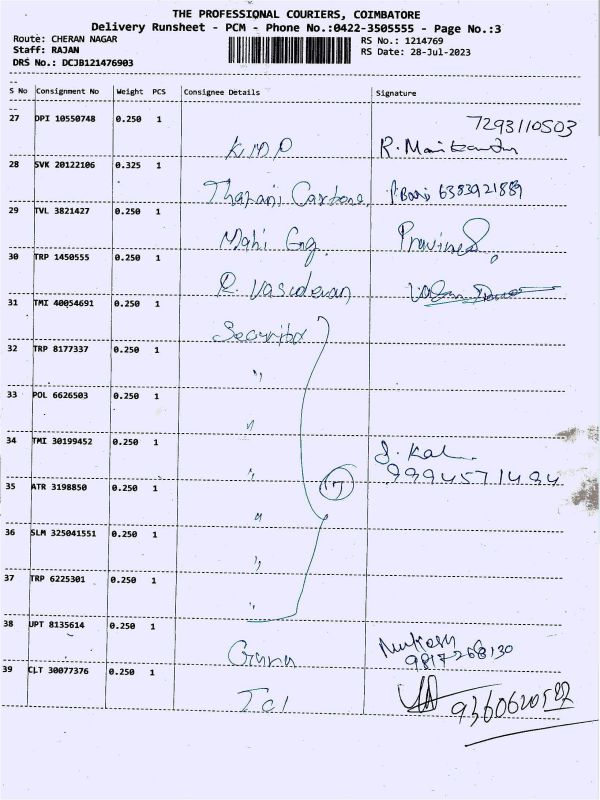 THE PROFESSIONAL COURIERS, COIMBATORE
Delivery Runsheet - PCM - Phone No.:0422-3505555 - Page No.:3
Route: CHERAN NAGAR
Staff: RAJAN
DRS No.: DCJB121476903
RS No.: 1214769
RS Date: 28-Jul-2023
S No Consignment No Weight PCS Consignee Details Signature
27 DPI 10550748 0.250 1
7293110503
K.M.P R.
28 SVK 20122106 0.325 1
Tharani Carbons 6383921889
29 TVL 3821427 0.250 1
Mahi Eng. Pravined
30 TRP 1450555 0.250 1
R. Vasudevan
31 TMI 40054691 0.250 1
Security
32 TRP 8177337 0.250 1
"
33 POL 6626503 0.250 1
"
34 TMI 30199452 0.250 1
"
J. Kal
9994571494
35 ATR 3198850 0.250 1
"
7
36 SLM 325041551 0.250 1
"
37 TRP 6225301 0.250 1
"
38 UPT 8135614 0.250 1
Guru Mukesh
9817268130
39 CLT 30077376 0.250 1
Tcl 9360620522